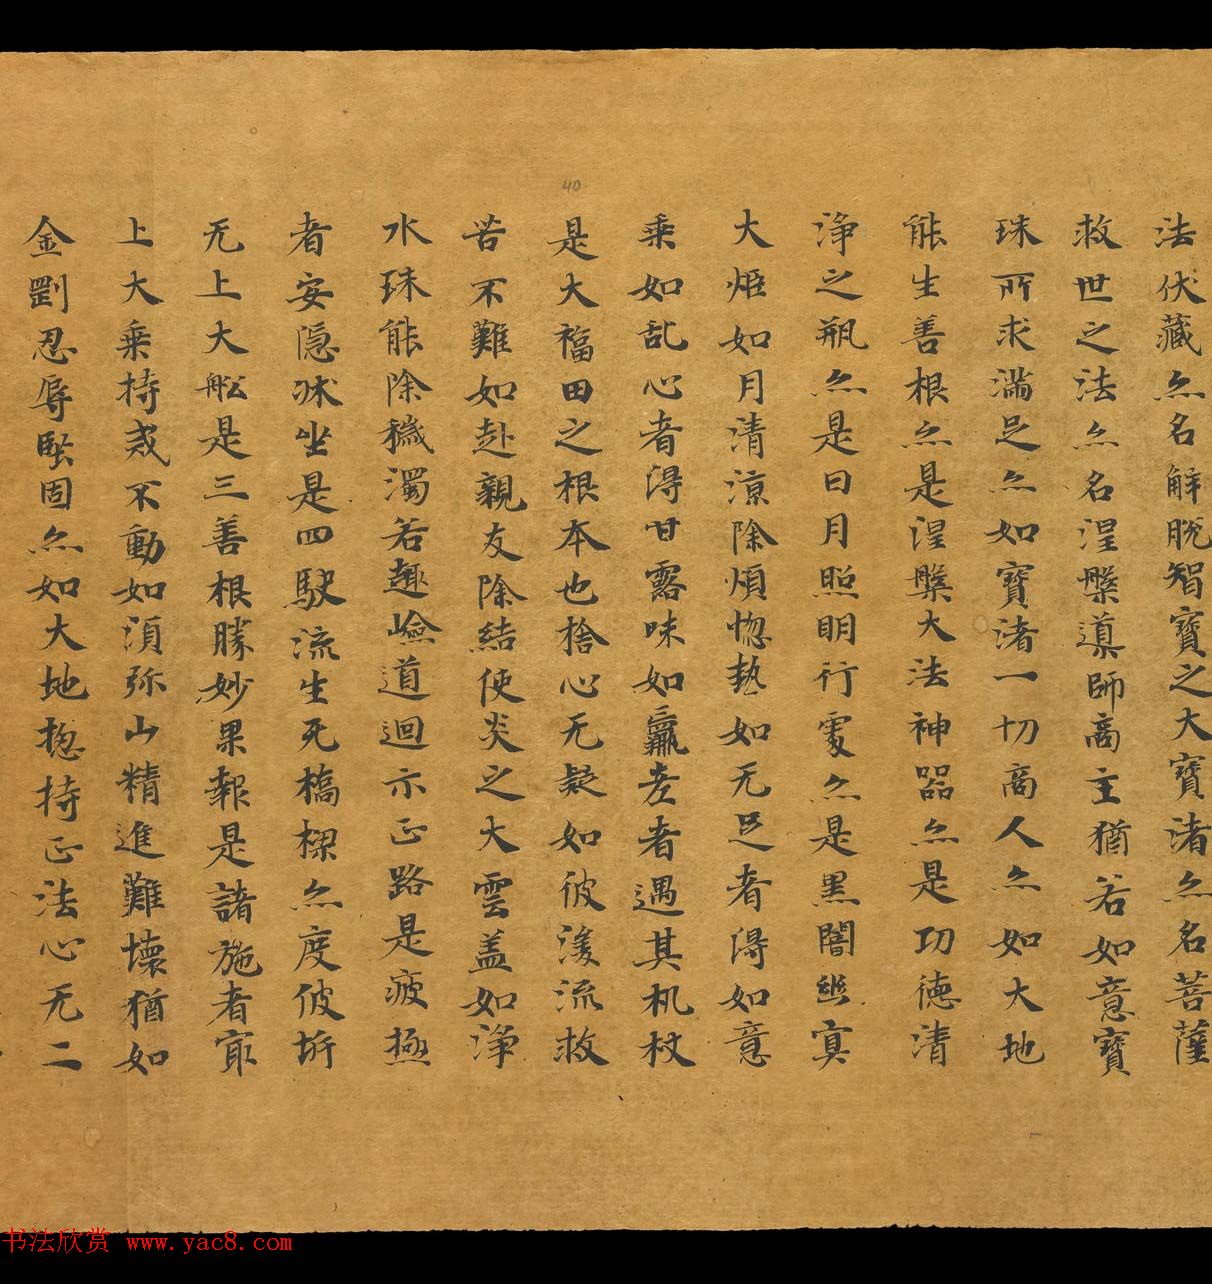 法伏藏尒名解脱智寶之大寶渚尒名菩薩
救世之法尒名涅槃導師商主猶若如意寶
珠所求満足尒如寶渚一切商人尒如大地
能生善根尒是涅槃大法神器尒是功德清
淨之瓶尒是日月照明行處尒是黑闇幽冥
大炬如月清涼除煩惚熱如无足者得如意
乘如乱心者得甘露味如羸老者遇其机杖
是大福田之根本也捨心无疑如彼漫流救
苦不難如赴親友除結使炎之大雲盖如淨
水珠能除穢濁若趣嶮道迴示正路是疲極
者安隱牀坐是四駛流生死橋樑尒度彼圻
无上大舩是三善根勝妙果報是諸施者㝡
上大乘持戒不動如湏弥山精進難壞猶如
金剛忍辱堅固尒如大地揔持正法心无二
40
书法欣赏 www.yac8.com